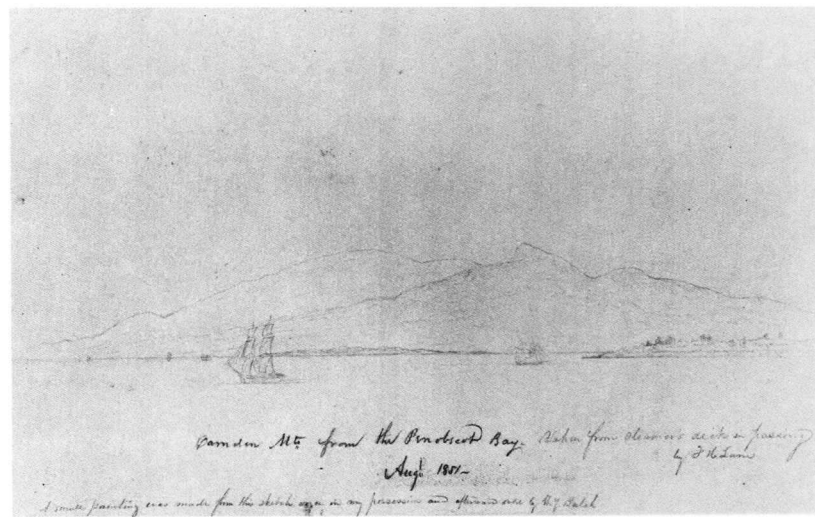 Camden Mts from the Penobscot Bay. Taken from steamer's deck in passing
by F H Lane
Augt 1851
A small painting was made from this sketch in my possession and afterward sold by